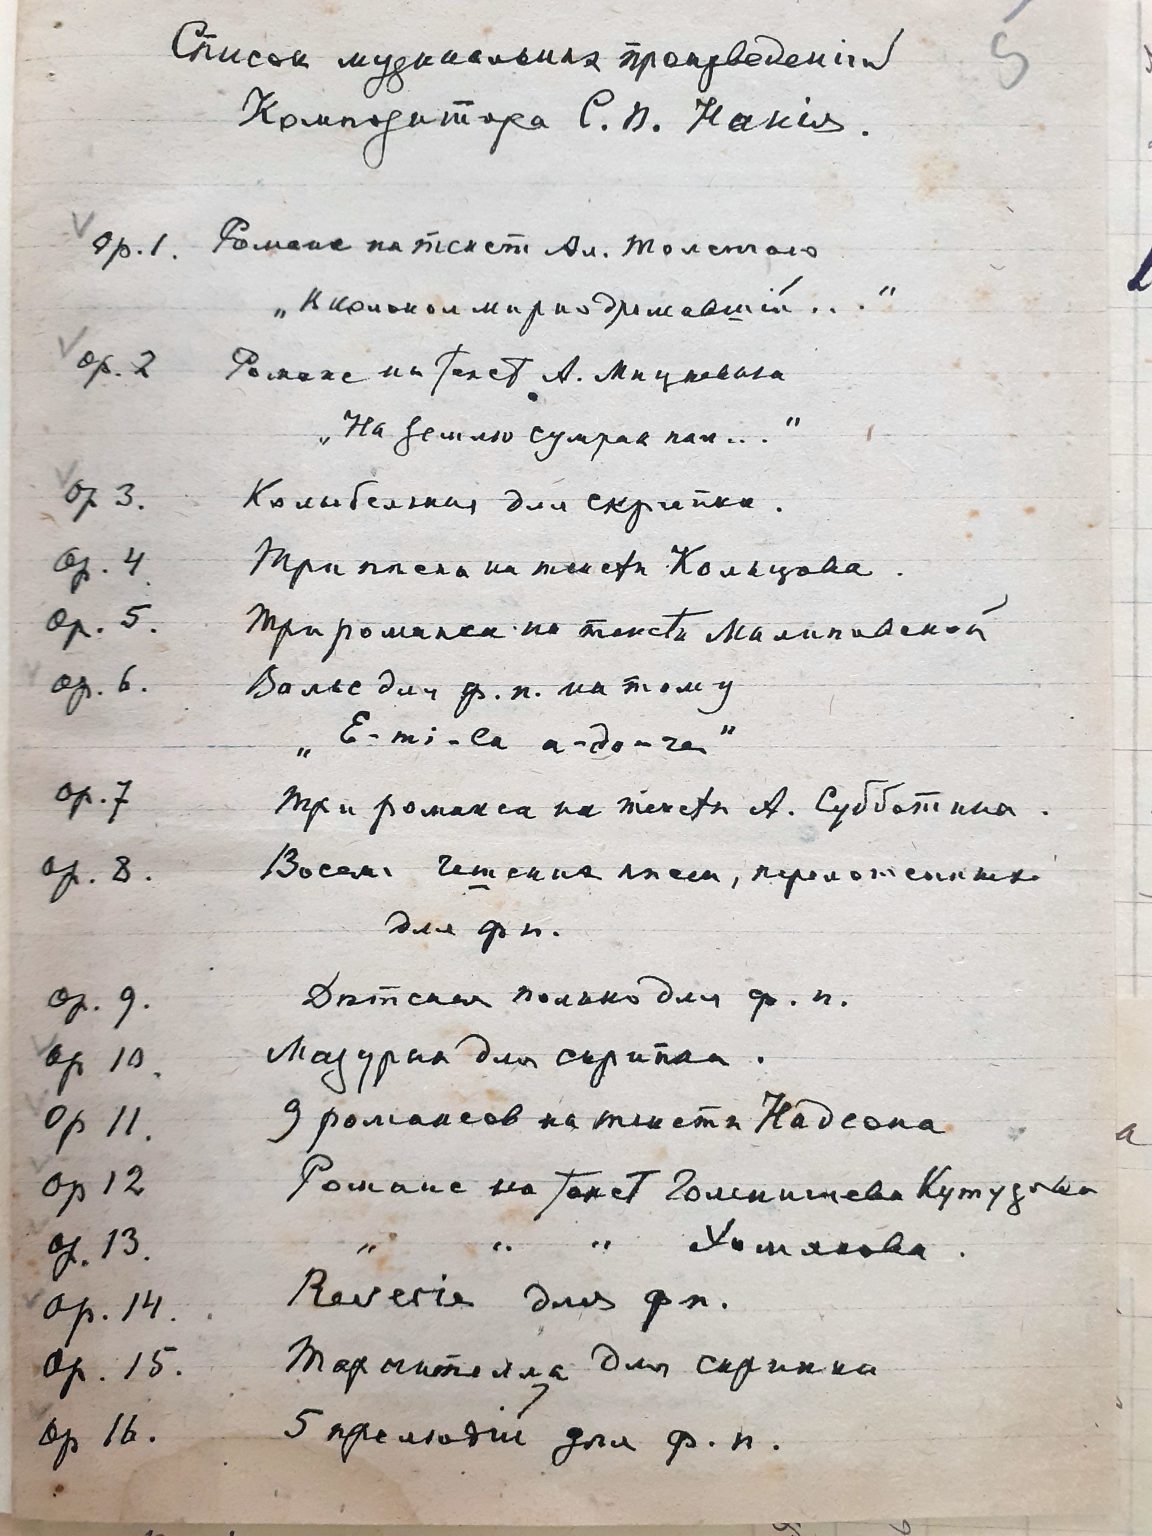 5
Список музыкальных произведенiй
Композитора С. П. Накiя.
Op. 1. Романс на текст Ал. Толстого
„Колокол мирно дремавшiй..."
Op. 2 Романс на текст А. Мицкевича
„На землю сумрак пал..."
Op 3. Колыбельная для скрипки.
Op. 4 Три песни на тексты Кольцова.
Op. 5. Три романса на тексты Малиновской
Op. 6. Вальс для ф. п. на тему
„E-mi-la a-do-re"
Op. 7 Три романса на тексты А. Субботина.
Op. 8. Восемь чешских песен, переложенных
для ф п.
Op. 9. Детская полька для ф. п.
Op 10. Мазурка для скрипки.
Op 11. 9 романсов на тексты Надсона
Op 12 Романс на текст Голенищева Кутузова
Op. 13. " " " Хомякова.
Op. 14. Reverie для ф п.
Op. 15. Тарантелла для скрипки
Op 16. 5 прелюдiй для ф. п.